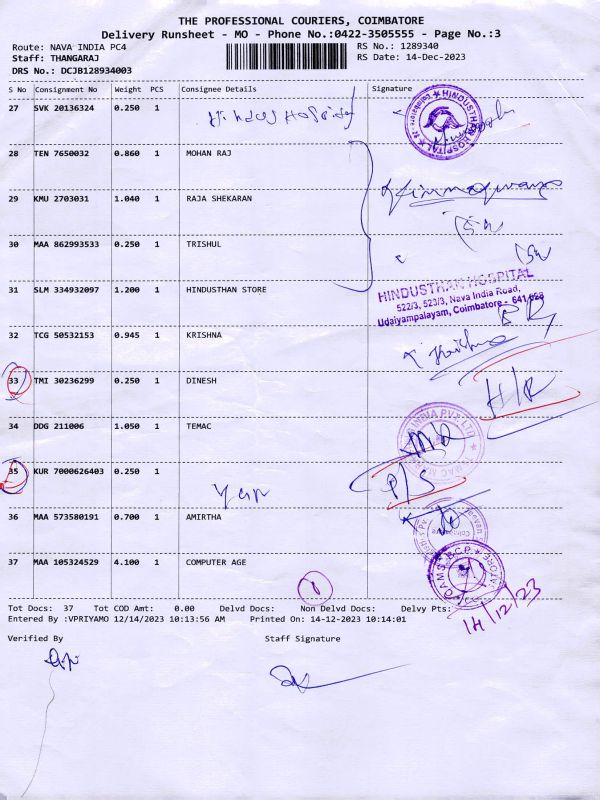 THE PROFESSIONAL COURIERS, COIMBATORE
Delivery Runsheet - MO - Phone No.:0422-3505555 - Page No.:3
Route: NAVA INDIA PC4 RS No.: 1289340
Staff: THANGARAJ RS Date: 14-Dec-2023
DRS No.: DCJB128934003
S No Consignment No Weight PCS Consignee Details Signature
27 SVK 20136324 0.250 1 Hindus Hospital
HINDUSTHAN HOSPITAL
28 TEN 7650032 0.860 1 MOHAN RAJ
29 KMU 2703031 1.040 1 RAJA SHEKARAN
30 MAA 862993533 0.250 1 TRISHUL
31 SLM 334932097 1.200 1 HINDUSTHAN STORE
HINDUSTHAN HOSPITAL
522/3, 523/3, Nava India Road,
Udaiyampalayam, Coimbatore - 641 028
32 TCG 50532153 0.945 1 KRISHNA Krishna
33 TMI 30236299 0.250 1 DINESH
34 DDG 211006 1.050 1 TEMAC
35 KUR 7000626403 0.250 1 P/S
36 MAA 573580191 0.700 1 AMIRTHA
37 MAA 105324529 4.100 1 COMPUTER AGE
14/12/23
Tot Docs: 37 Tot COD Amt: 0.00 Delvd Docs: Non Delvd Docs: Delvy Pts:
Entered By :VPRIYAMO 12/14/2023 10:13:56 AM Printed On: 14-12-2023 10:14:01
Verified By Staff Signature